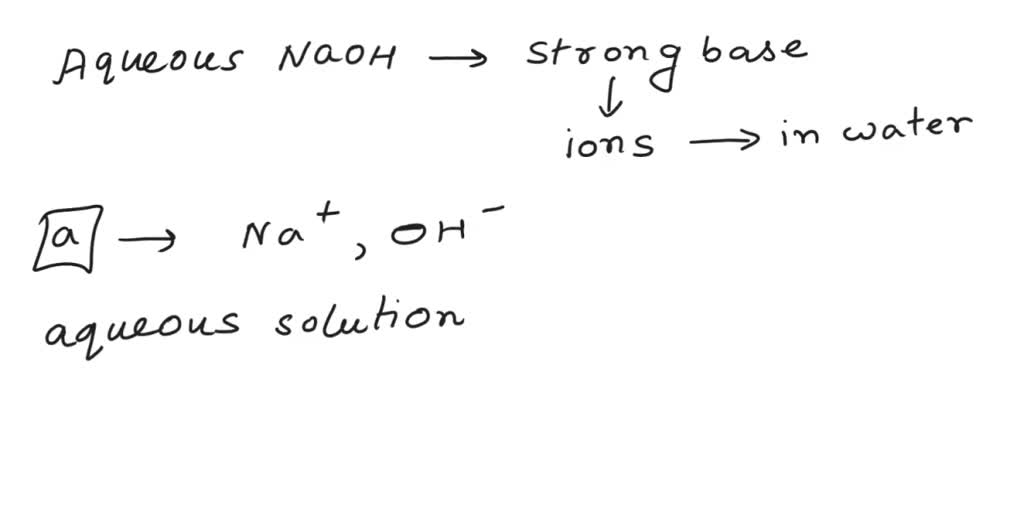 Aqueous NaOH → strong base
↓
ions → in water
a → Na⁺, OH⁻
aqueous solution